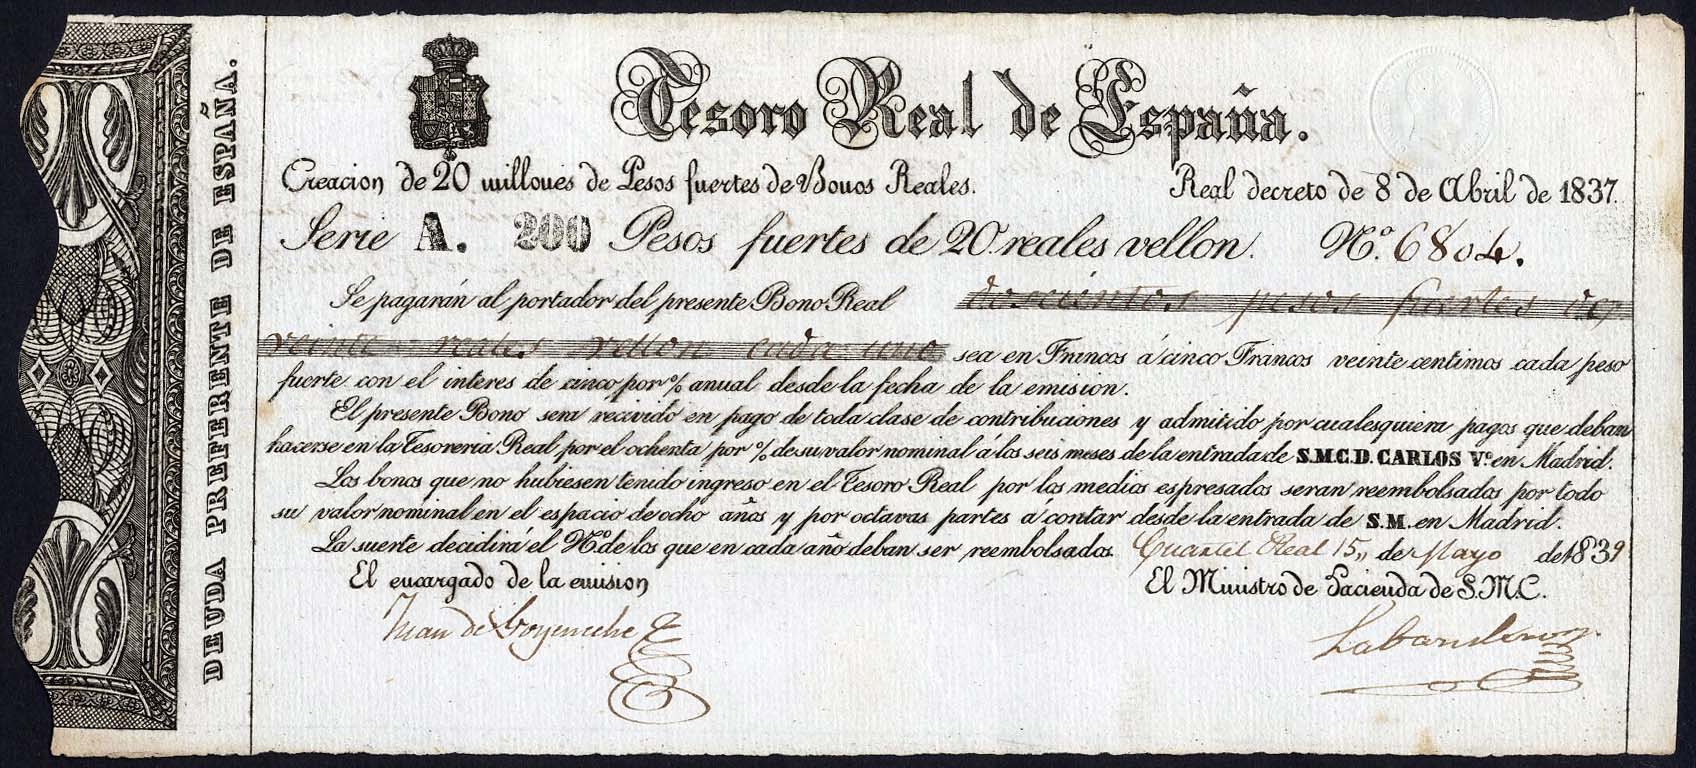 DEUDA PREFERENTE DE ESPAÑA.
Tesoro Real de España.
Creacion de 20 millones de Pesos fuertes de Bonos Reales. Real decreto de 8 de Abril de 1837.
Serie A. 200 Pesos fuertes de 20 reales vellon. Nº 6804.
Se pagarán al portador del presente Bono Real doscientos pesos fuertes de
veinte reales vellon cada uno sea en Francos á cinco Francos veinte centimos cada peso
fuerte con el interes de cinco por % anual desde la fecha de la emision.
El presente Bono sera recivido en pago de toda clase de contribuciones y admitido por cualesquiera pagos que deban
hacerse en la Tesoreria Real, por el ochenta por % de su valor nominal á los seis meses de la entrada de S.M.C.D. CARLOS Vº en Madrid.
Los bonos que no hubiesen tenido ingreso en el Tesoro Real por los medios espresados seran reembolsados por todo
su valor nominal en el espacio de ocho años y por octavas partes a contar desde la entrada de S.M. en Madrid.
La suerte decidira el Nº de los que en cada año deban ser reembolsados. Cuartel Real 15,, de Mayo de 1839
El encargado de la emision El Ministro de Hacienda de S.M.C.
Juan de Goyeneche Labandero